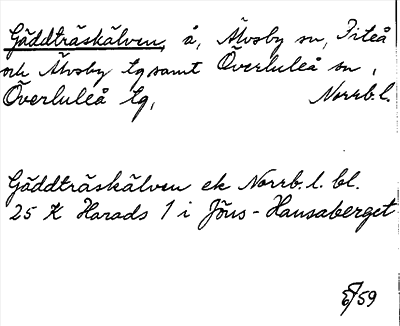 Gäddträskälven, å, Älvsby sn, Piteå
och Älvsby tg samt Överluleå sn,
Överluleå tg, Norrb. l.
Gäddträskälven ek Norrb. l. bl.
25 K Harads 1 i Jöns-Hansaberget
59